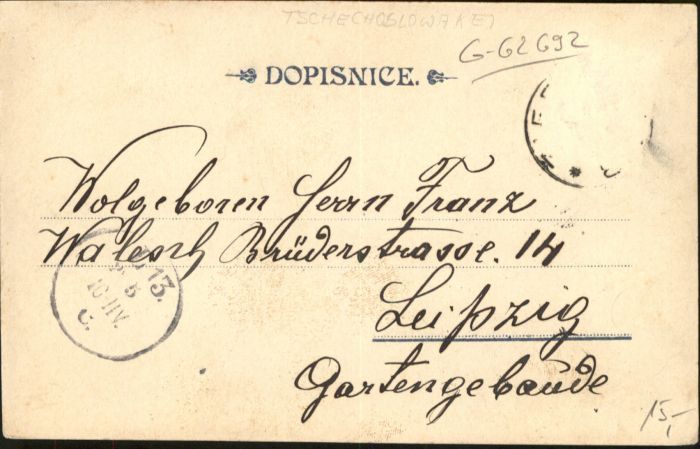 TSCHECHOSLOWAKEI
G-62692
DOPISNICE.
Wolgeboren Herrn Franz
Walesch Brüderstrasse. 14
Leipzig
Gartengebäude
13.
5
10-11V.
C.
15,-